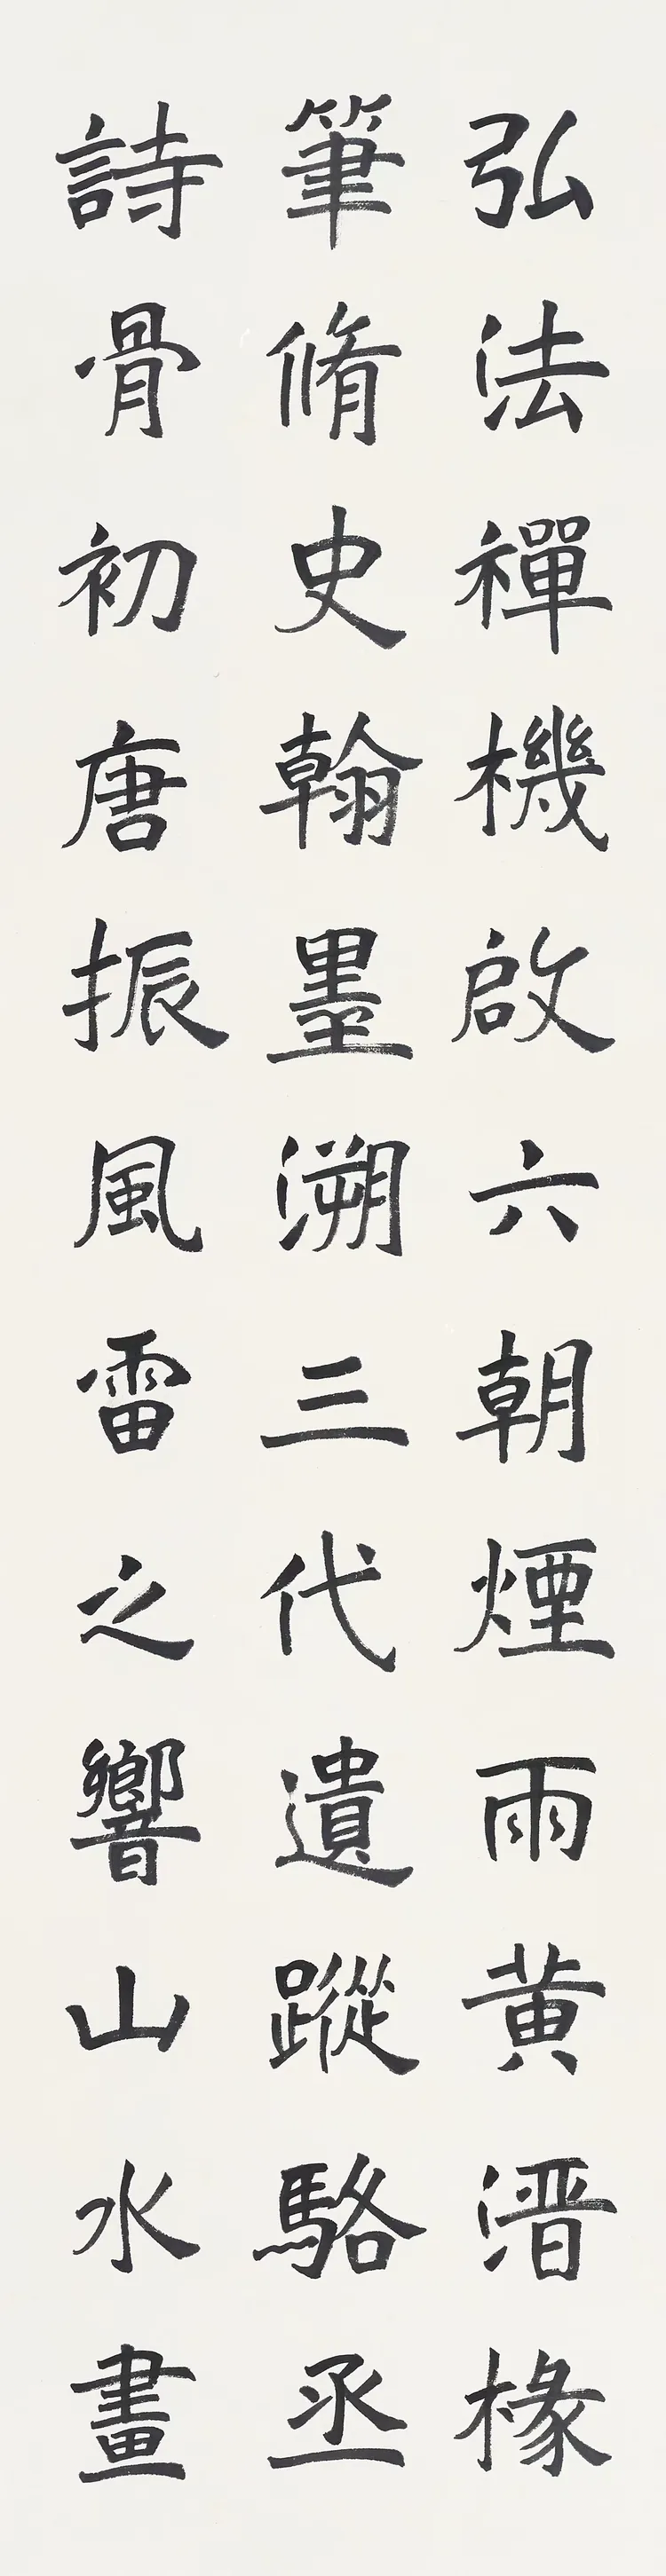 弘法禪機啟六朝煙雨黃溍椽
筆脩史翰墨溯三代遺蹤駱丞
詩骨初唐振風雷之響山水畫